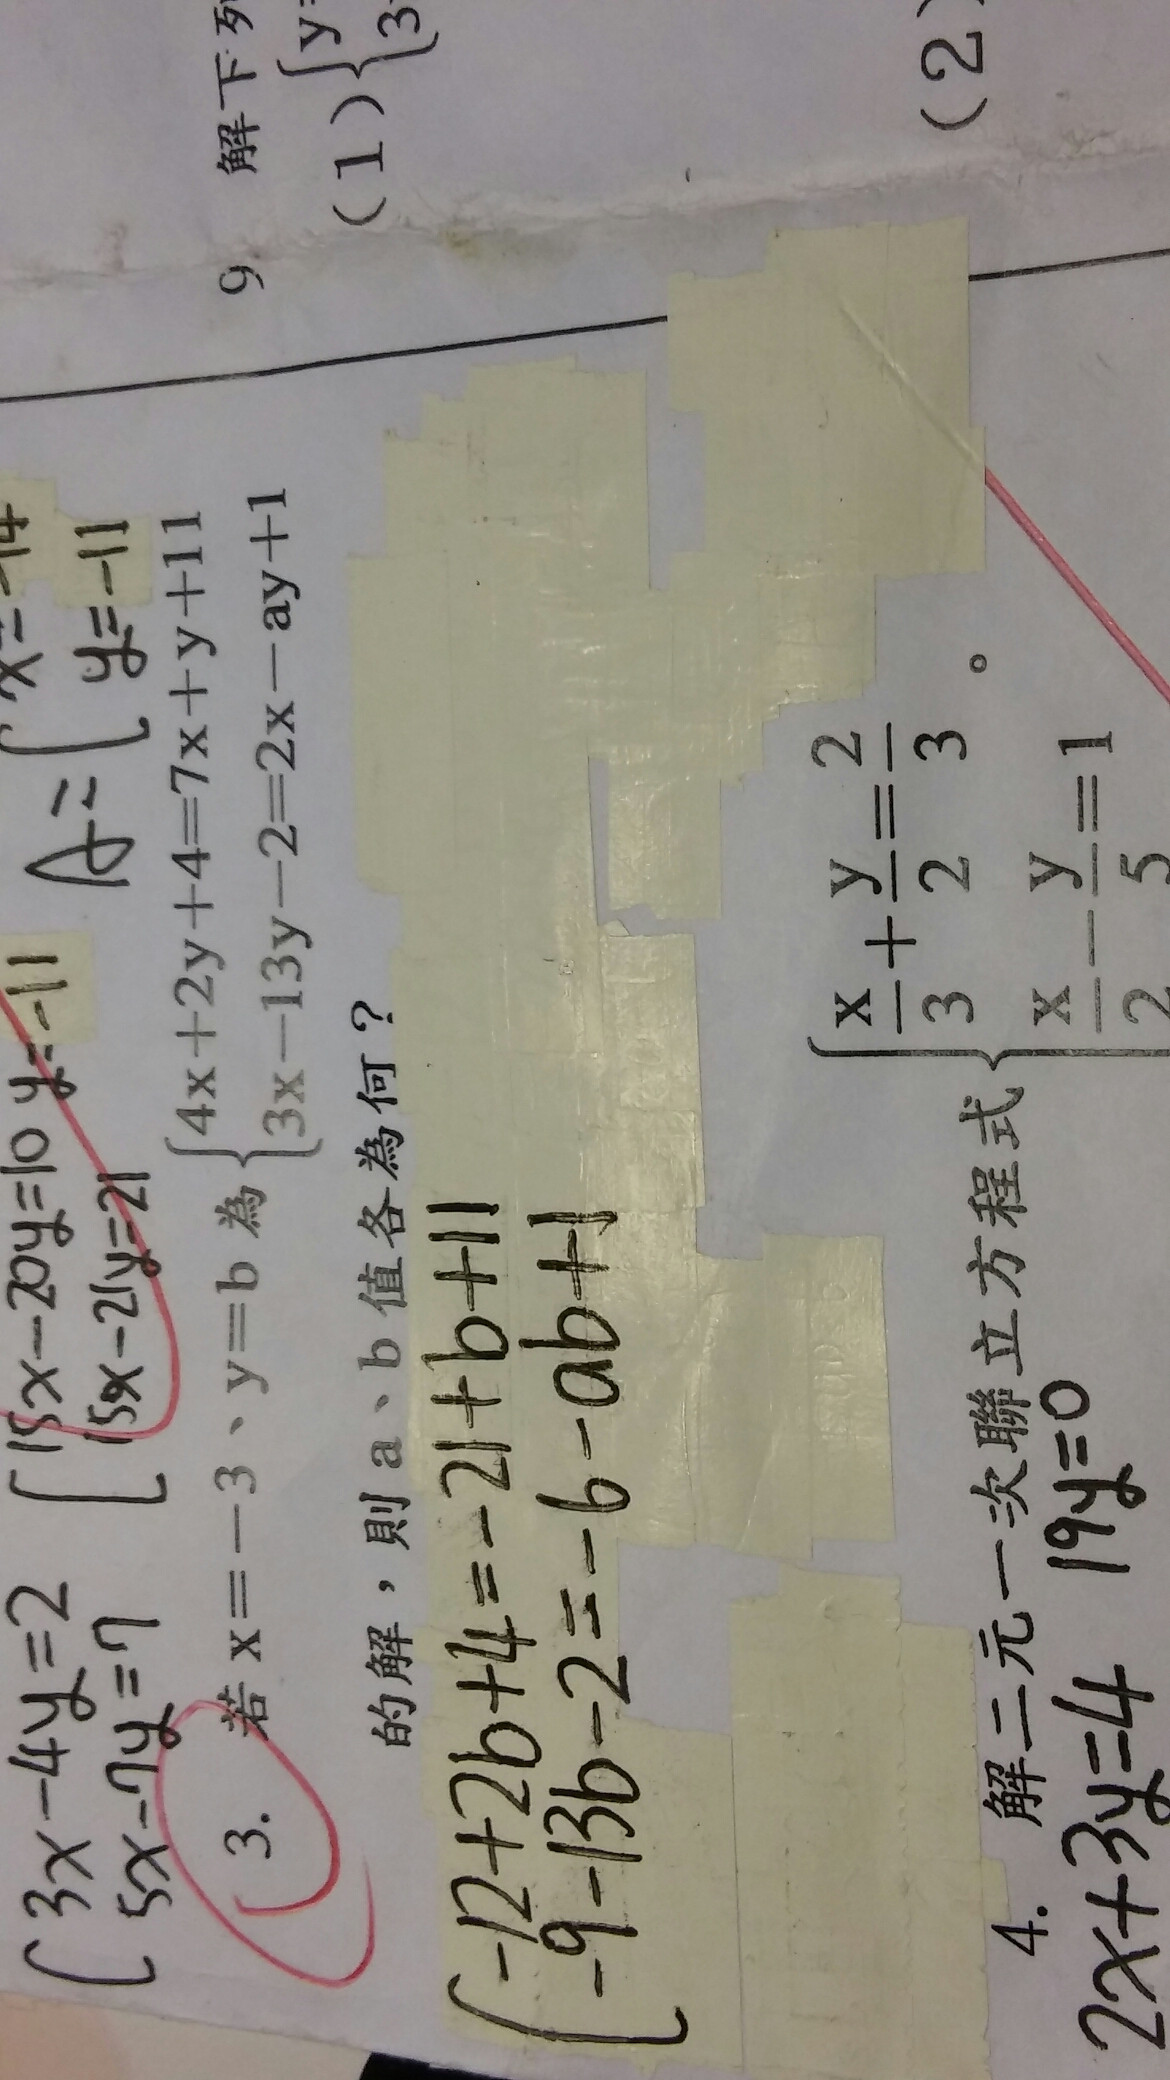 3x-4y=2 15x-20y=10 y=-11 x=-14
5x-7y=7 15x-21y=21 A= y=-11
3. 若x=-3、y=b為 4x+2y+4=7x+y+11
3x-13y-2=2x-ay+1
的解,則a、b值各為何?
-12+2b+4=-21+b+11
-9-13b-2=-6-ab+1
4. 解二元一次聯立方程式 x/3+y/2=2/3
x/2-y/5=1 。
2x+3y=4 19y=0
9 解下列
(1) y=
3
(2)